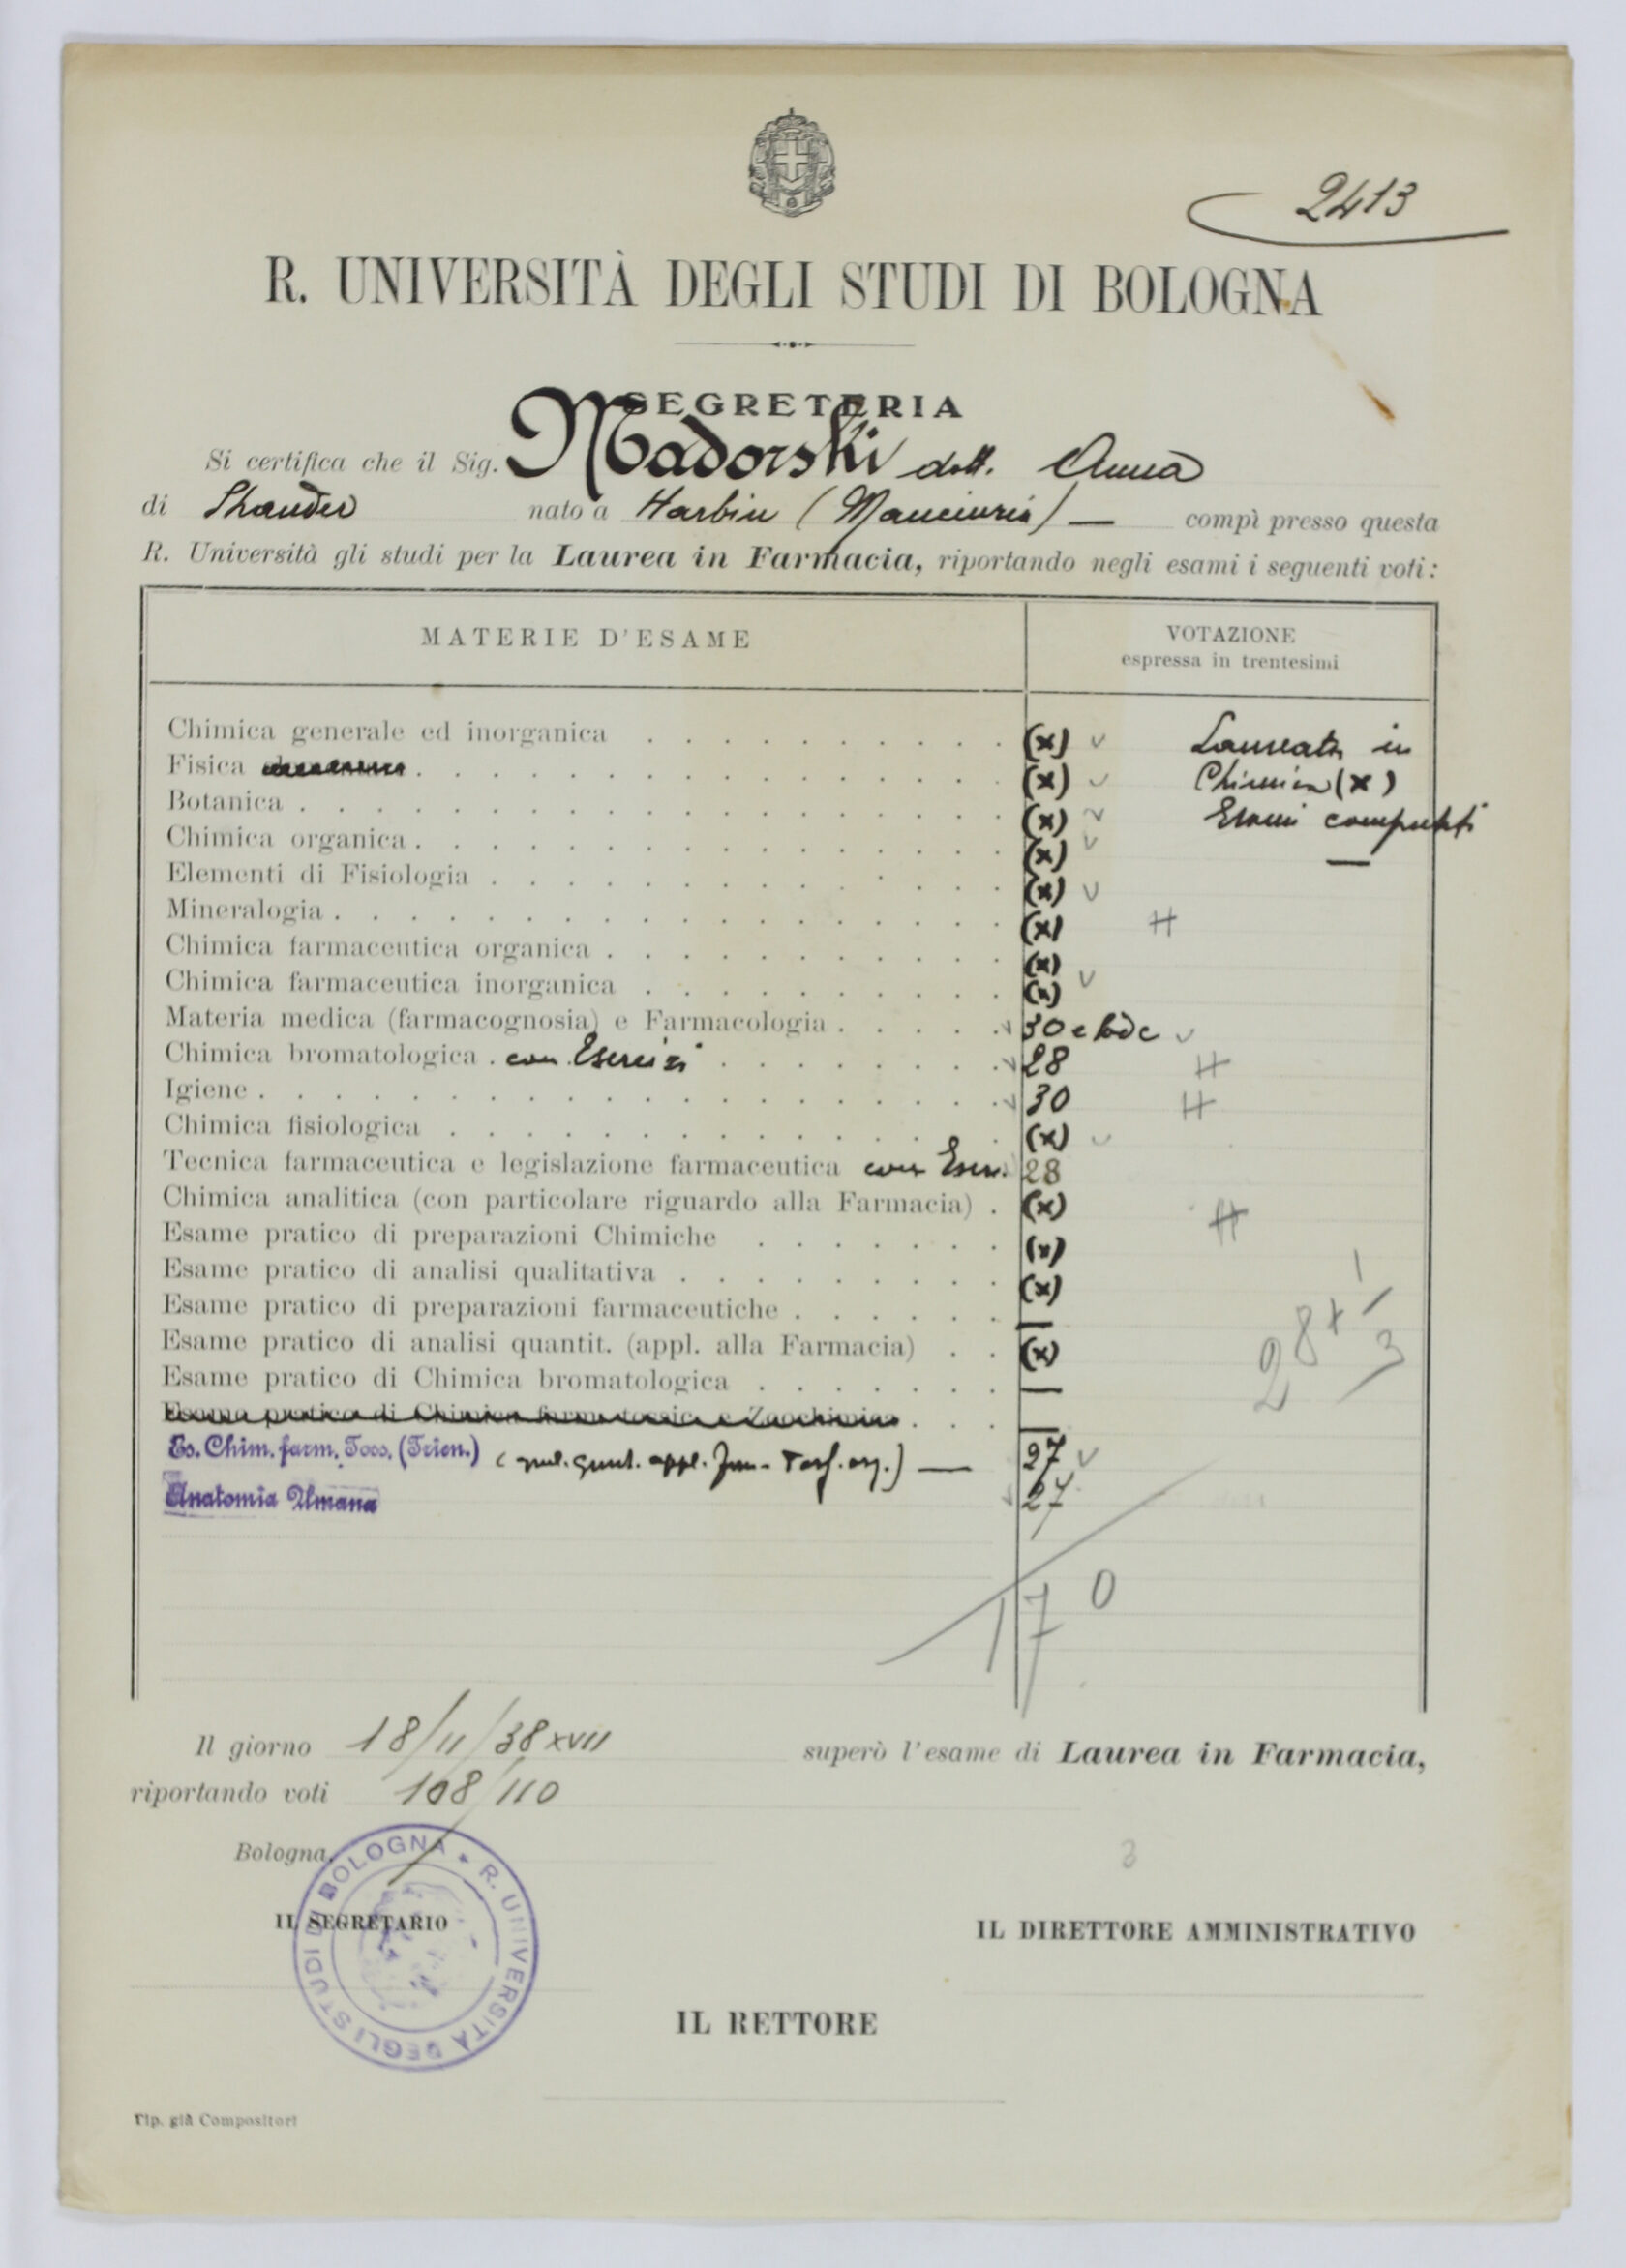 2413
R. UNIVERSITÀ DEGLI STUDI DI BOLOGNA
SEGRETERIA
Si certifica che il Sig. Madorski dott. Anna
di nato a Harbin (Manciuria) — compì presso questa
R. Università gli studi per la Laurea in Farmacia, riportando negli esami i seguenti voti:
MATERIE D'ESAME VOTAZIONE
espressa in trentesimi
Chimica generale ed inorganica (x) Laureata in
Fisica (x) Chimica (x)
Botanica (x) Esami
Chimica organica (x)
Elementi di Fisiologia (x)
Mineralogia (x)
Chimica farmaceutica organica (x)
Chimica farmaceutica inorganica (x)
Materia medica (farmacognosia) e Farmacologia 30 e lode
Chimica bromatologica con Esercizi 28
Igiene 30
Chimica fisiologica (x)
Tecnica farmaceutica e legislazione farmaceutica con Eser. 28
Chimica analitica (con particolare riguardo alla Farmacia) (x)
Esame pratico di preparazioni Chimiche (x)
Esame pratico di analisi qualitativa (x)
Esame pratico di preparazioni farmaceutiche —
Esame pratico di analisi quantit. (appl. alla Farmacia) (x)
28 + 1/3
Esame pratico di Chimica bromatologica —
Esame pratico di Chimica —
Es. Chim. farm. Toss. (Trien.) — 27
Anatomia Umana 27
170
Il giorno 18/11/38 XVII superò l'esame di Laurea in Farmacia,
riportando voti 108/110
Bologna, 3
IL SEGRETARIO IL DIRETTORE AMMINISTRATIVO
R. UNIVERSITÀ DEGLI STUDI DI BOLOGNA
IL RETTORE
Tip. già Compositori